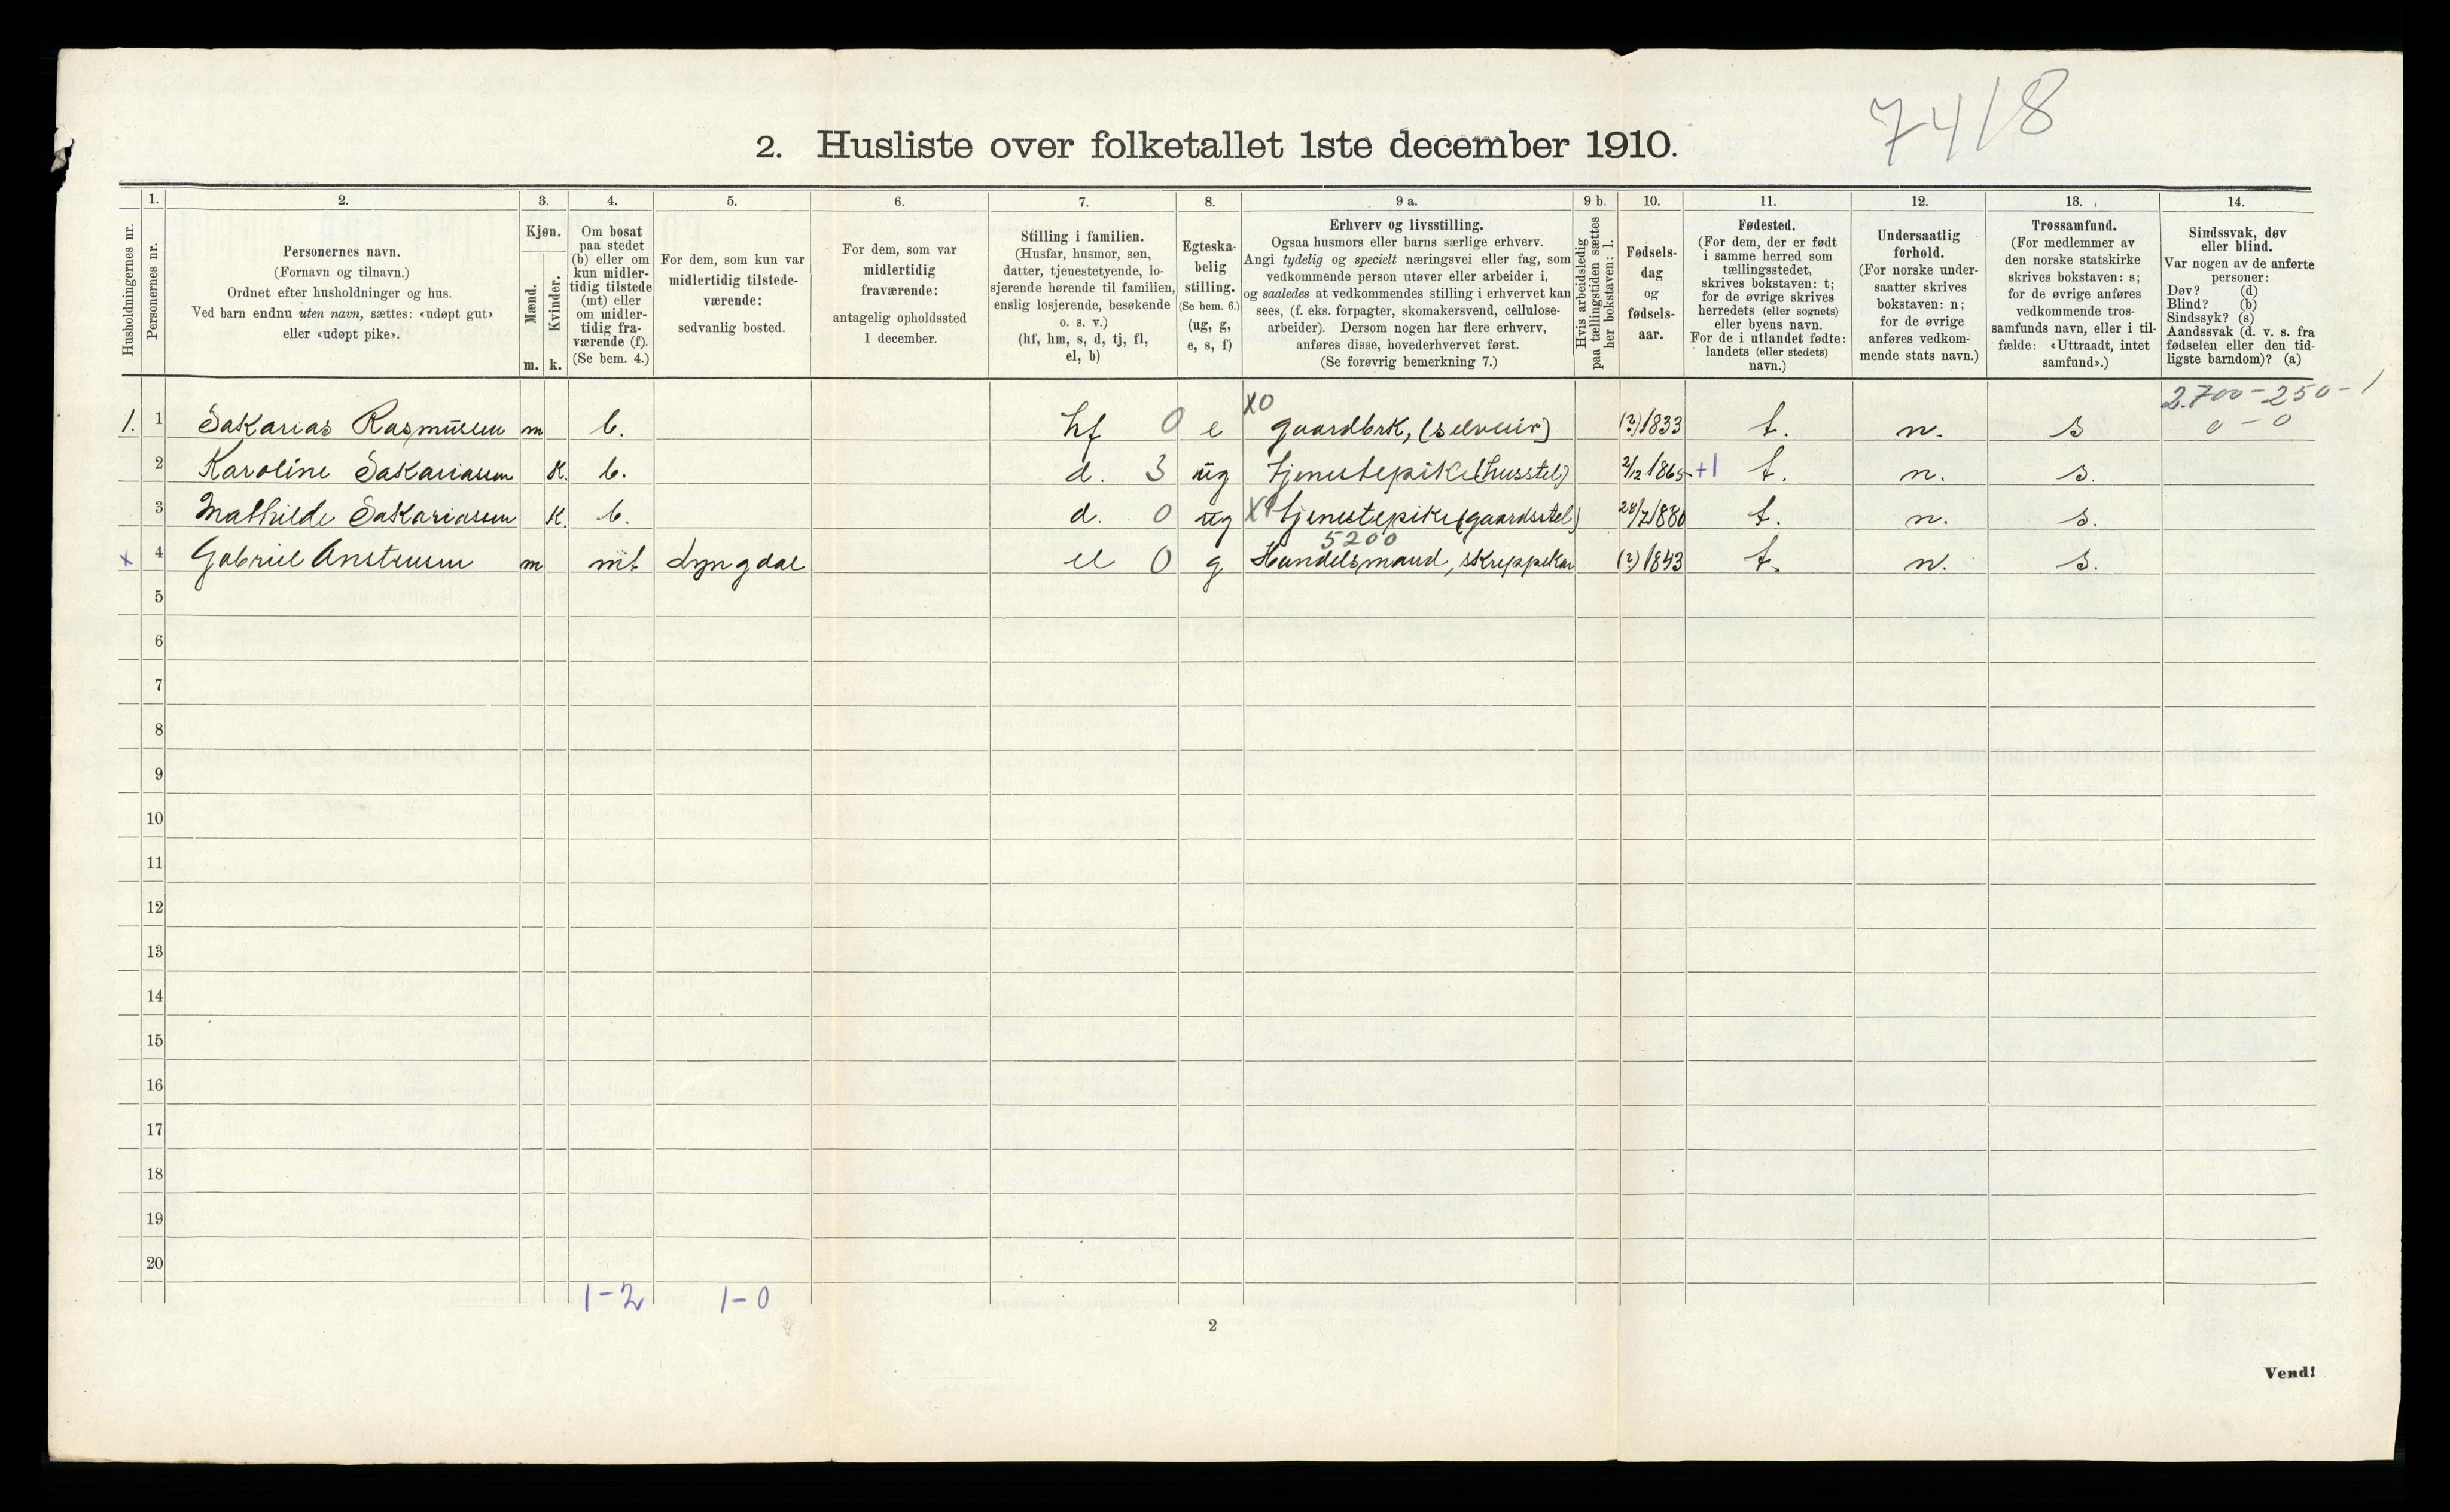 7418
2. Husliste over folketallet 1ste december 1910.
Husholdningernes nr.
1.
Personernes nr.
2.
Personernes navn.
(Fornavn og tilnavn.)
Ordnet efter husholdninger og hus.
Ved barn endnu uten navn, sættes: «udøpt gut»
eller «udøpt pike».
3.
Kjøn.
Mænd.
Kvinder.
m. k.
4.
Om bosat
paa stedet
(b) eller om
kun midler-
tidig tilstede
(mt) eller
om midler-
tidig fra-
værende (f).
(Se bem. 4.)
5.
For dem, som kun var
midlertidig tilstede-
værende:
sedvanlig bosted.
6.
For dem, som var
midlertidig
fraværende:
antagelig opholdssted
1 december.
7.
Stilling i familien.
(Husfar, husmor, søn,
datter, tjenestetyende, lo-
sjerende hørende til familien,
enslig losjerende, besøkende
o. s. v.)
(hf, hm, s, d, tj, fl,
el, b)
8.
Egteska-
belig
stilling.
(Se bem. 6.)
(ug, g,
e, s, f)
9 a.
Erhverv og livsstilling.
Ogsaa husmors eller barns særlige erhverv.
Angi tydelig og specielt næringsvei eller fag, som
vedkommende person utøver eller arbeider i,
og saaledes at vedkommendes stilling i erhvervet kan
sees, (f. eks. forpagter, skomakersvend, cellulose-
arbeider). Dersom nogen har flere erhverv,
anføres disse, hovederhvervet først.
(Se forøvrig bemerkning 7.)
9 b.
Hvis arbeidsledig
paa tællingstiden sættes
her bokstaven: l.
10.
Fødsels-
dag
og
fødsels-
aar.
11.
Fødested.
(For dem, der er født
i samme herred som
tællingsstedet,
skrives bokstaven: t;
for de øvrige skrives
herredets (eller sognets)
eller byens navn.
For de i utlandet fødte:
landets (eller stedets)
navn.)
12.
Undersaatlig
forhold.
(For norske under-
saatter skrives
bokstaven: n;
for de øvrige
anføres vedkom-
mende stats navn.)
13.
Trossamfund.
(For medlemmer av
den norske statskirke
skrives bokstaven: s;
for de øvrige anføres
vedkommende tros-
samfunds navn, eller i til-
fælde: «Uttraadt, intet
samfund».)
14.
Sindssvak, døv
eller blind.
Var nogen av de anførte
personer:
Døv? (d)
Blind? (b)
Sindssyk? (s)
Aandssvak (d. v. s. fra
fødselen eller den tid-
ligste barndom)? (a)
X0 2.700-250-1
1. 1 Sakarias Rasmussen m b. hf 0 e gaardbrk, (selveier) (?) 1833 t. n. s 0-0
2 Karoline Sakariassen K. b. d. 3 ug tjenestepike (husstel) 2/12 1865 +1 t. n. s.
3 Mathilde Sakariassen K. b. d. 0 ug X9 tjenestepike (gaardsstel) 28/7 1880 t. n. s.
5200
x 4 Gabriel m mt Lyngdal el 0 g Handelsmand, skreppekar (?) 1843 t. n. s.
5
6
7
8
9
10
11
12
13
14
15
16
17
18
19
20
1-2 1-0
2
Vend!